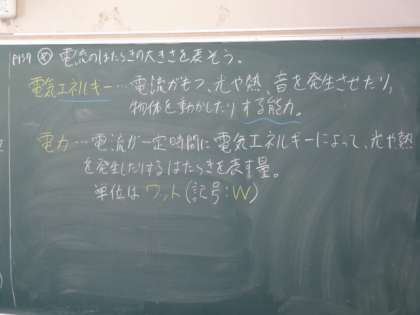 P137 め 電流のはたらきの大きさを表そう。
電気エネルギー…電流がもつ、光や熱、音を発生させたり、
物体を動かしたりする能力。
電力…電流が一定時間に電気エネルギーによって、光や熱
を発生したりするはたらきを表す量。
単位はワット(記号:W)